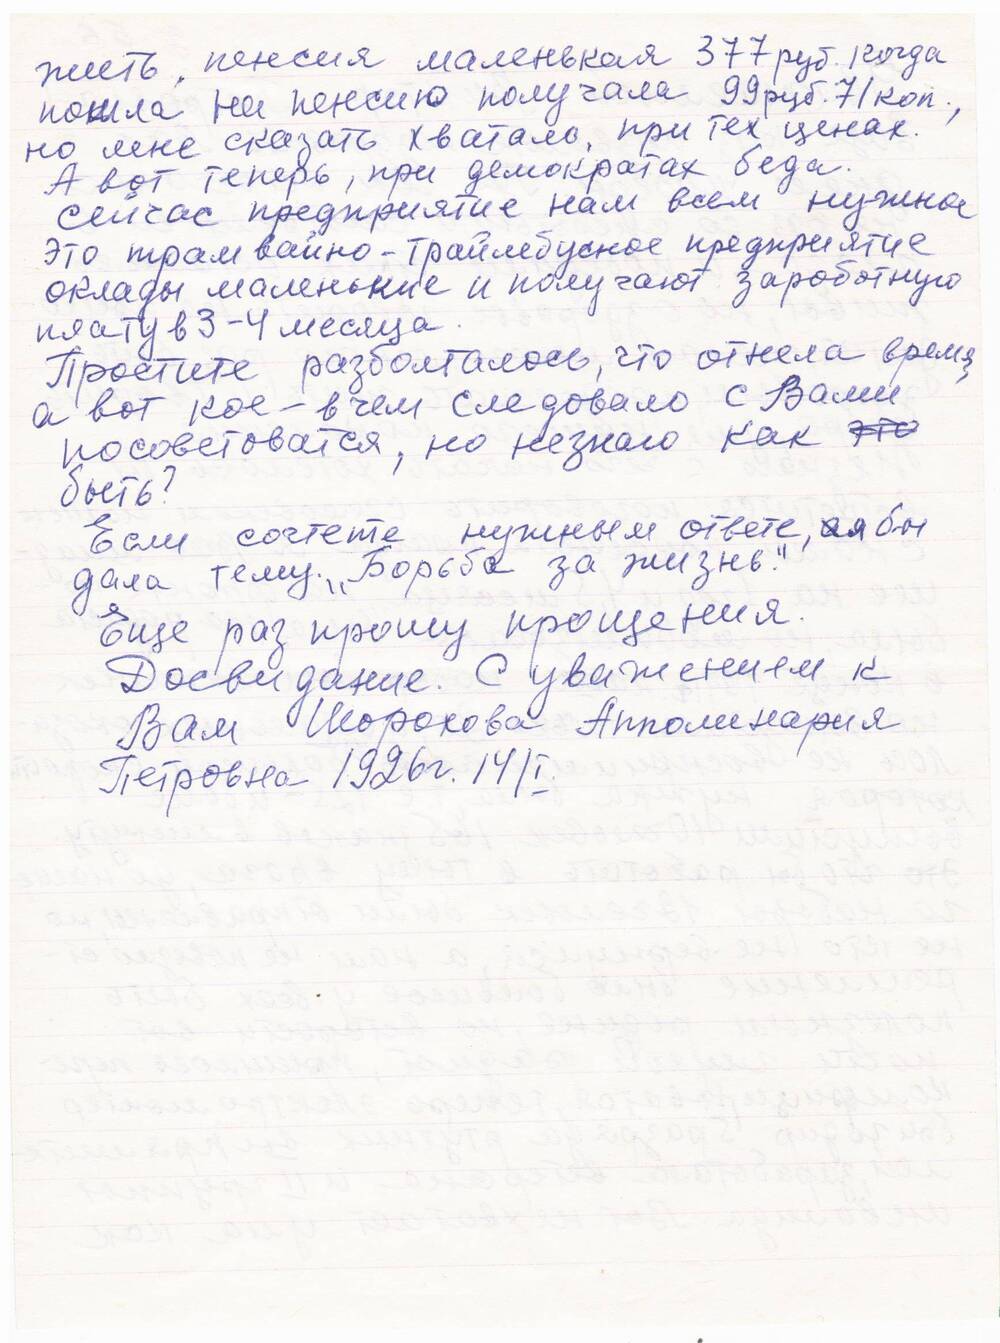 жить, пенсия маленькая 377 руб. когда
пошла на пенсию получала 99 руб. 71 коп.,
но мне сказать хватало, при тех ценах.
А вот теперь, при демократах беда.
Сейчас предприятие нам всем нужное
это трамвайно-траймбусное предприятие
оклады маленькие и получают зароботную
плату в 3-4 месяца.
Простите разболталось, что отнела время,
а вот кое-в чем следовало с Вами
посоветоватся, но незнаю как это
быть?
Если сочтете нужным ответе, я бы
дала тему „Борьба за жизнь."
Еще раз прошу прощения.
Досвидание. С уважением к
Вам Шорохова Апполинария
Петровна 1926г. 14/I.